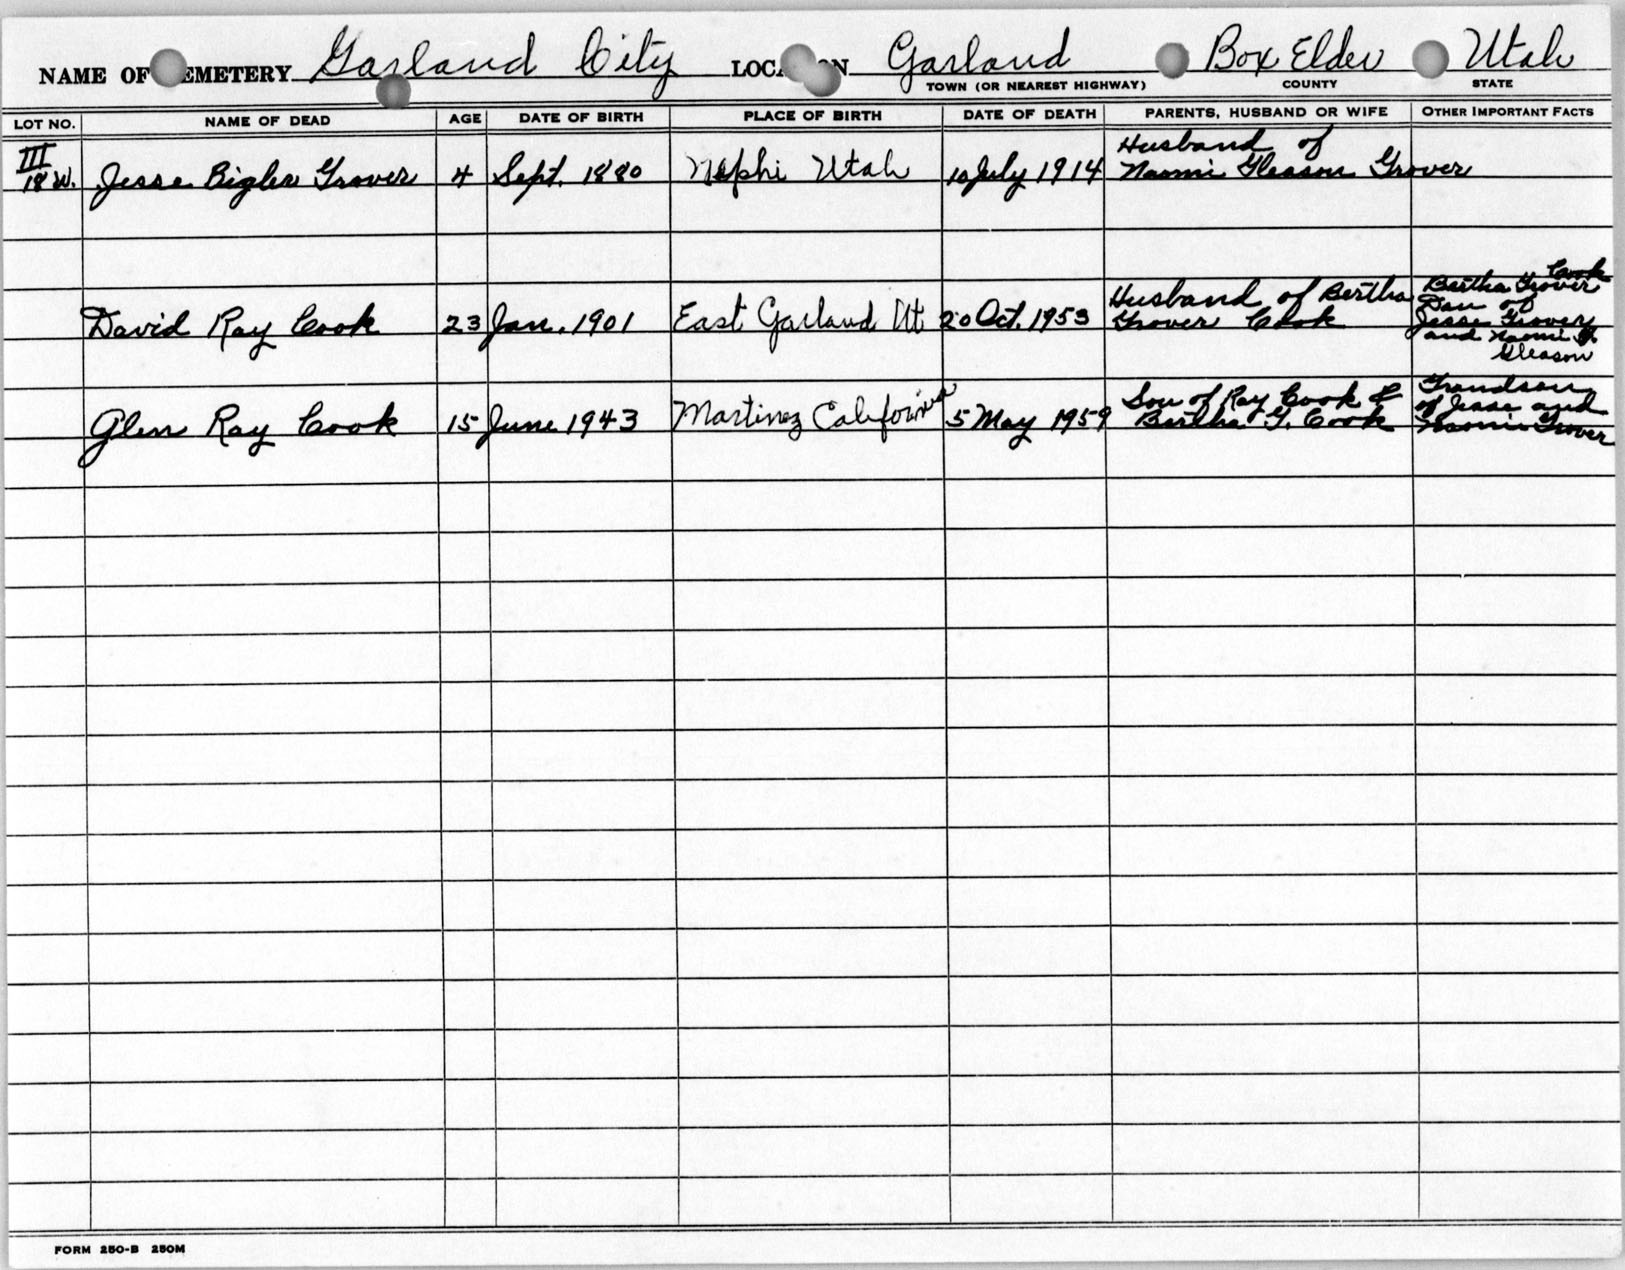 NAME OF CEMETERY Garland City LOCATION Garland Box Elder Utah
TOWN (OR NEAREST HIGHWAY) COUNTY STATE
LOT NO. NAME OF DEAD AGE DATE OF BIRTH PLACE OF BIRTH DATE OF DEATH PARENTS, HUSBAND OR WIFE OTHER IMPORTANT FACTS
III
18 W. Jesse Bigler Grover 4 Sept. 1880 Nephi Utah 10 July 1914 Husband of
Naomi Gleason Grover
David Ray Cook 23 Jan. 1901 East Garland Ut 20 Oct. 1953 Husband of Bertha
Grover Cook
Cook
Bertha Grover
Dau of
Jesse Grover
and Naomi G.
Gleason
Glen Ray Cook 15 June 1943 Martinez California 5 May 1959 Son of Ray Cook &
Bertha G. Cook
Grandson
of Jesse and
Naomi Grover
FORM 250-B 250M